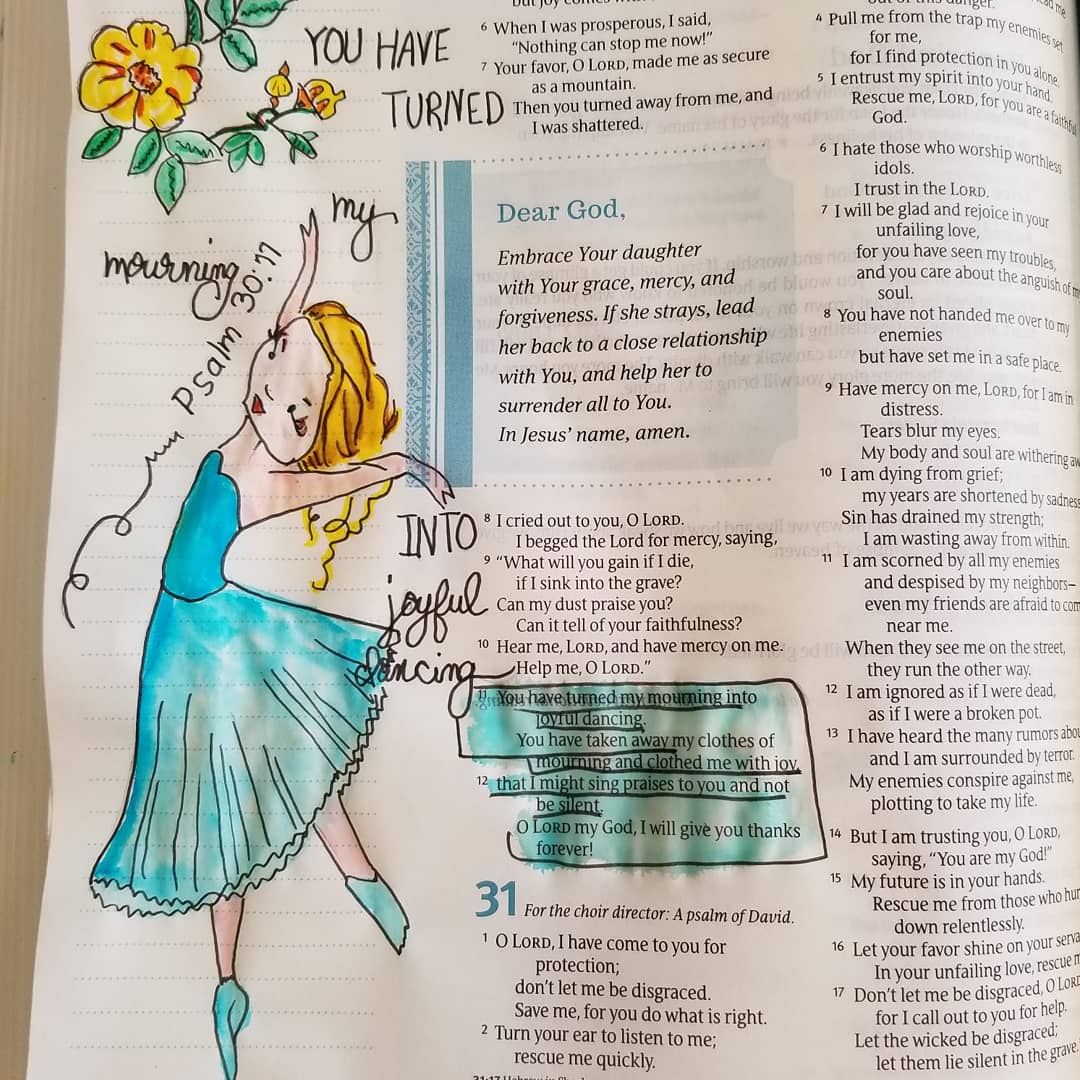 YOU HAVE
TURNED
my
mourning
Psalm 30:11
INTO
joyful
dancing
6 When I was prosperous, I said,
"Nothing can stop me now!"
7 Your favor, O LORD, made me as secure
as a mountain.
Then you turned away from me, and
I was shattered.
Dear God,
Embrace Your daughter
with Your grace, mercy, and
forgiveness. If she strays, lead
her back to a close relationship
with You, and help her to
surrender all to You.
In Jesus' name, amen.
8 I cried out to you, O LORD.
I begged the Lord for mercy, saying,
9 "What will you gain if I die,
if I sink into the grave?
Can my dust praise you?
Can it tell of your faithfulness?
10 Hear me, LORD, and have mercy on me.
Help me, O LORD."
11 You have turned my mourning into
joyful dancing.
You have taken away my clothes of
mourning and clothed me with joy,
12 that I might sing praises to you and not
be silent.
O LORD my God, I will give you thanks
forever!
31 For the choir director: A psalm of David.
1 O LORD, I have come to you for
protection;
don't let me be disgraced.
Save me, for you do what is right.
2 Turn your ear to listen to me;
rescue me quickly.
4 Pull me from the trap my enemies set
for me,
for I find protection in you alone.
5 I entrust my spirit into your hand.
Rescue me, LORD, for you are a faithful
God.
6 I hate those who worship worthless
idols.
I trust in the LORD.
7 I will be glad and rejoice in your
unfailing love,
for you have seen my troubles,
and you care about the anguish of
soul.
8 You have not handed me over to my
enemies
but have set me in a safe place.
9 Have mercy on me, LORD, for I am in
distress.
Tears blur my eyes.
My body and soul are withering
10 I am dying from grief;
my years are shortened by sadness
Sin has drained my strength;
I am wasting away from within.
11 I am scorned by all my enemies
and despised by my neighbors—
even my friends are afraid to
near me.
When they see me on the street,
they run the other way.
12 I am ignored as if I were dead,
as if I were a broken pot.
13 I have heard the many rumors
and I am surrounded by terror.
My enemies conspire against me,
plotting to take my life.
14 But I am trusting you, O LORD,
saying, "You are my God!"
15 My future is in your hands.
Rescue me from those who
down relentlessly.
16 Let your favor shine on your
In your unfailing love, rescue
17 Don't let me be disgraced, O LORD
for I call out to you for help.
Let the wicked be disgraced;
let them lie silent in the grave.